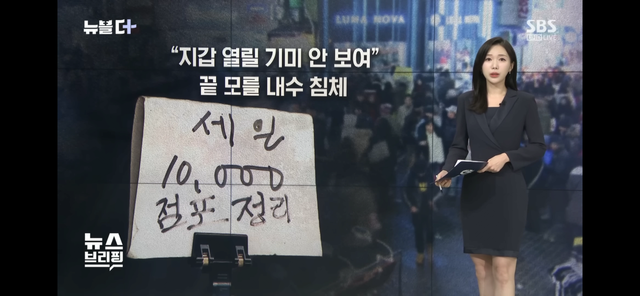 뉴블더+
SBS
LUNA NOVA
“지갑 열릴 기미 안 보여”
끝 모를 내수 침체
세일
10,000
점포정리
뉴스
브리핑